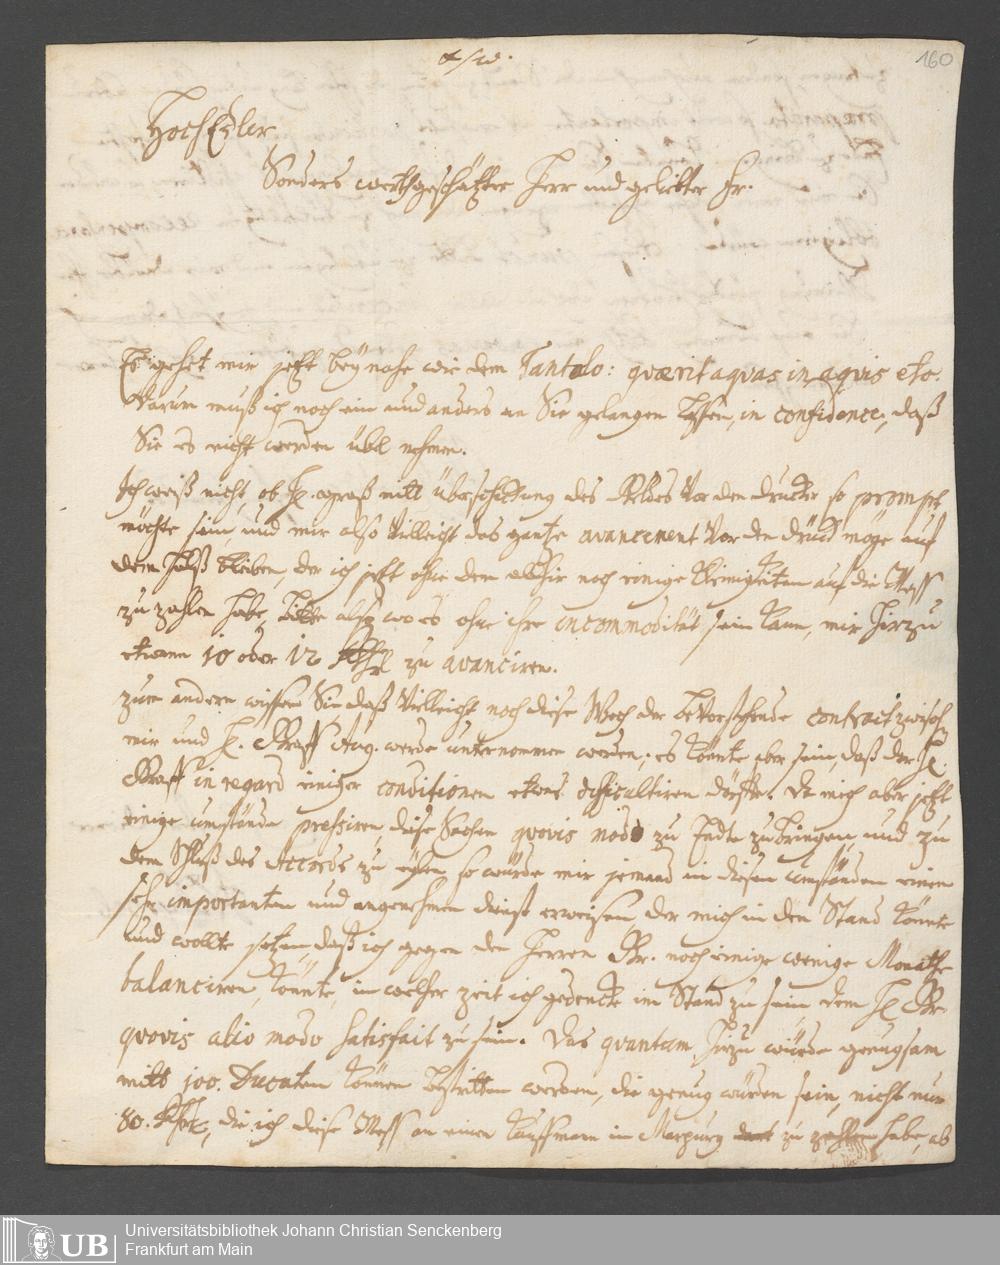 160
HochEdler
Sonders werthgeschätzter Herr und geliebter Fr.
Es gehet mir jetzt bey nahe wie dem Tantalo: quærit aquas in aquis etc.
darum muß ich noch ein und anders an Sie gelangen laßen, in confidence, daß
Sie es nicht werden übel nehmen.
Ich weiß nicht, ob H. mitt überschickung des Geldes vor den drucker so prompt
möchte sein, und mir also vielleicht das gantze avancement vor den druck möge auf
dem Halß bleiben, der ich jetzt ohne dem noch einige Kleinigkeiten auf die Meß
zu zahlen habe, bitte also wo es ohne ihre incommodität sein kann, mir hirzu
etwann 10 oder 12 zu avanciren.
zum andern wissen Sie daß vielleicht noch diese Woch der bevorstehende contract zwisch
mir und H. Graff Aug. werde unternommen werden, es könte aber sein, daß der H.
Graff in regard einiger conditionen etwas difficultiren dörffte. Da mich aber jetzt
einige umstände pressiren, diese Sachen quovis modo zu Endte zu bringen, und zu
dem Schluß des Accords zu eylen so würde mir jemand in diesen umständen einen
sehr importanten und angenehmen dienst erweisen, der mich in den Stand könte
und wollte setzen, daß ich gegen den Herren Gr. noch einige wenige Monathe
balanciren könnte, in welcher zeit ich gedencke im Stand zu sein dem H. Gr.
quovis alio modo satisfait zu sein. Das quantum hirzu würde genugsam
mitt 100. Ducaten können bestritten werden, die genug würden sein, nicht nur
80. die ich diese Meß an einen Kauffmann in Marpurg zu zahlen habe, ab
Universitätsbibliothek Johann Christian Senckenberg
Frankfurt am Main
UB